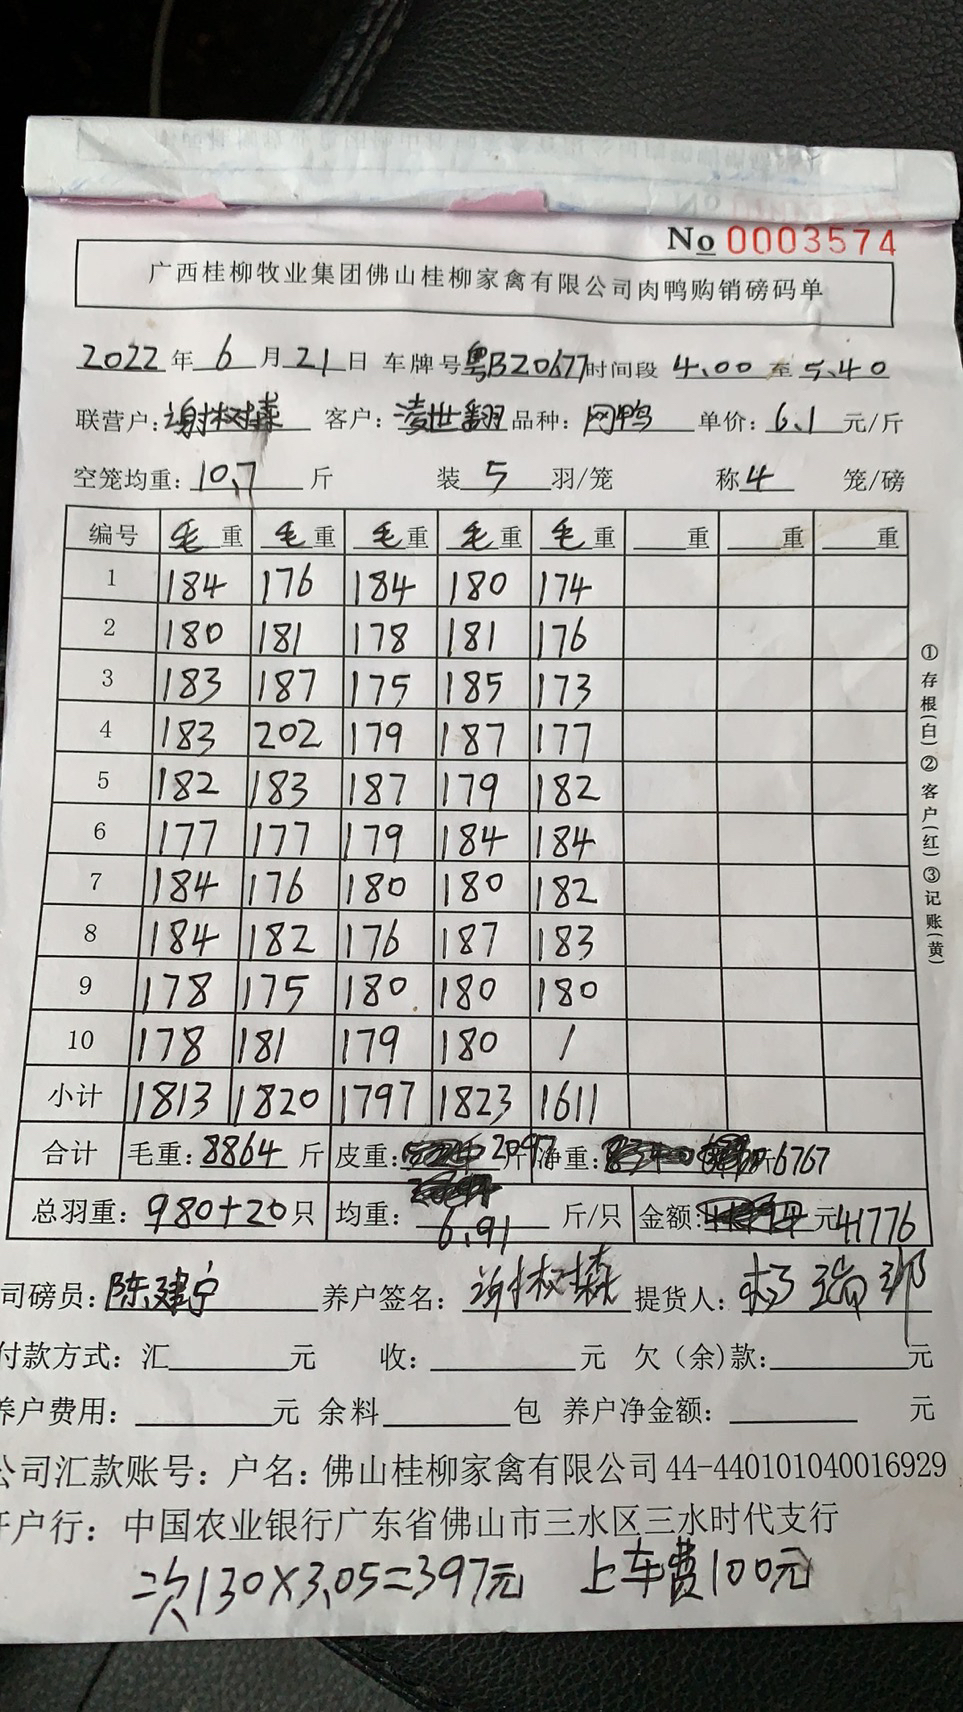 No 0003574
广西桂柳牧业集团佛山桂柳家禽有限公司肉鸭购销磅码单
2022年6月21日 车牌号粤BZ0677时间段 4.00至5.40
联营户:谢树森 客户:凌世翻 品种:网鸭 单价:6.1元/斤
空笼均重:10.7斤 装5羽/笼 称4笼/磅
编号 毛重 毛重 毛重 毛重 毛重 重 重 重
1 184 176 184 180 174
2 180 181 178 181 176
3 183 187 175 185 173
4 183 202 179 187 177
5 182 183 187 179 182
6 177 177 179 184 184
7 184 176 180 180 182
8 184 182 176 187 183
9 178 175 180 180 180
10 178 181 179 180 /
小计 1813 1820 1797 1823 1611
合计 毛重:8864斤 皮重:2097斤 净重:斤6767
总羽重:980+20只 均重:6.91斤/只 金额:元41776
司磅员:陈建宁 养户签名:谢树森 提货人:杨瑞邓
付款方式:汇 元 收: 元 欠(余)款: 元
养户费用: 元 余料 包 养户净金额: 元
公司汇款账号:户名:佛山桂柳家禽有限公司44-440101040016929
开户行:中国农业银行广东省佛山市三水区三水时代支行
次130×3.05=397元 上车费100元
①存根(白)②客户(红)③记账(黄)